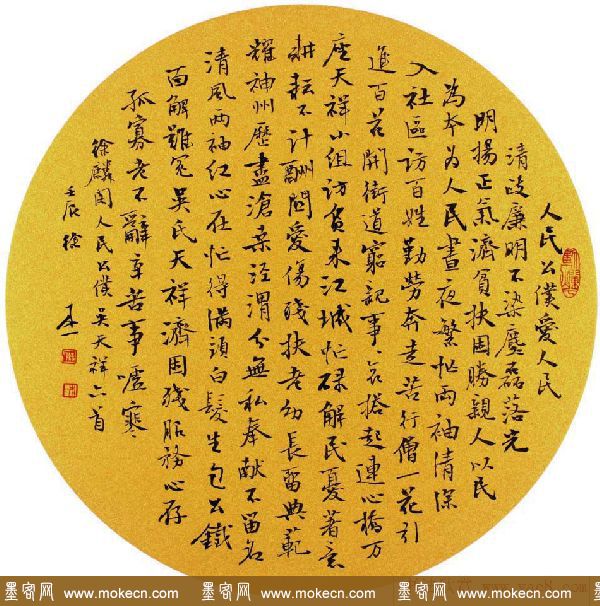 人民公僕愛人民
清政廉明不染塵磊落光
明揚正氣濟貧扶困勝親人以民
為本為人民晝夜繁忙两袖清深
入社區訪百姓勤勞奔走苦行僧一花引
進百花開街道窮親事事哀搭起連心橋万
座天祥小組訪貧来江城忙碌解民憂著意
耕耘不計酬問愛傷殘扶老幼長留典範
耀神州歷盡滄桑涇渭分無私奉獻不留名
清風两袖红心在忙得满頭白髮生包公鐵
面解難冤吴氏天祥濟困殘服務心存
孤寡老不辭辛苦事噓寒
徐麟閣人民公僕吴天祥六首
壬辰 徐
墨客网 www.mokecn.com 墨客网 www.mokecn.com 墨客网 www.mokecn.com